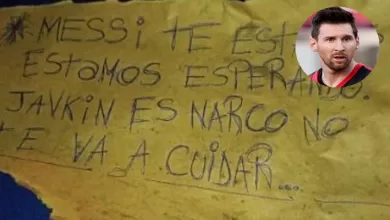 *MESSI TE ESTA
ESTAMOS ESPERANDO.
JAVKIN ES NARCO NO
TE VA A CUIDAR...